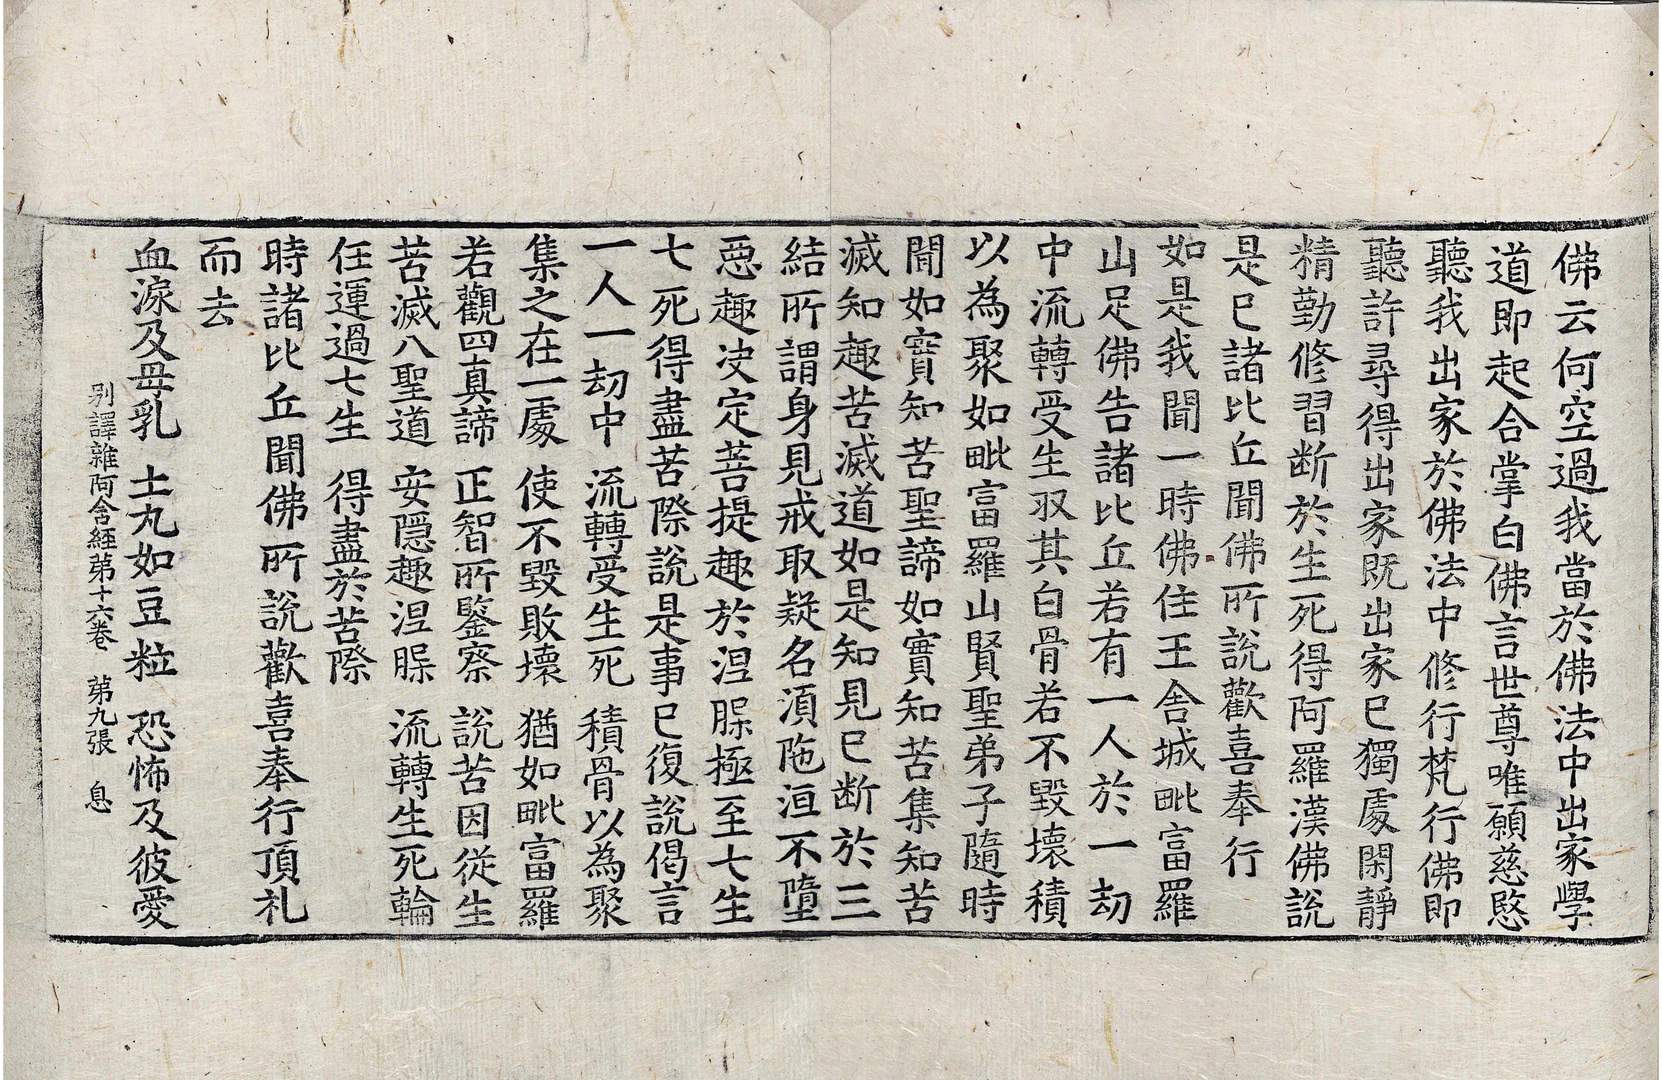 佛云何空過我當於佛法中出家學
道即起合掌白佛言世尊唯願慈愍
聽我出家於佛法中修行梵行佛即
聽許尋得出家既出家已獨處閑靜
精勤修習断於生死得阿羅漢佛說
是已諸比丘聞佛所說歡喜奉行
如是我聞一時佛住王舍城毗富羅
山足佛告諸比丘若有一人於一劫
中流轉受生収其白骨若不毀壞積
以為聚如毗富羅山賢聖弟子隨時
聞如實知苦聖諦如實知苦集知苦
滅知趣苦滅道如是知見已断於三
結所謂身見戒取疑名須陁洹不墮
惡趣决定菩提趣於涅槃極至七生
七死得盡苦際說是事已復說偈言
一人一劫中　流轉受生死　積骨以為聚
集之在一處　使不毀敗壞　猶如毗富羅
若觀四真諦　正智所鑒察　說苦因從生
苦滅八聖道　安隱趣涅槃　流轉生死輪
任運過七生　得盡於苦際
時諸比丘聞佛所說歡喜奉行頂礼
而去
血淚及母乳　土丸如豆粒　恐怖及彼愛
别譯雜阿含経第十六巻　第九張　息